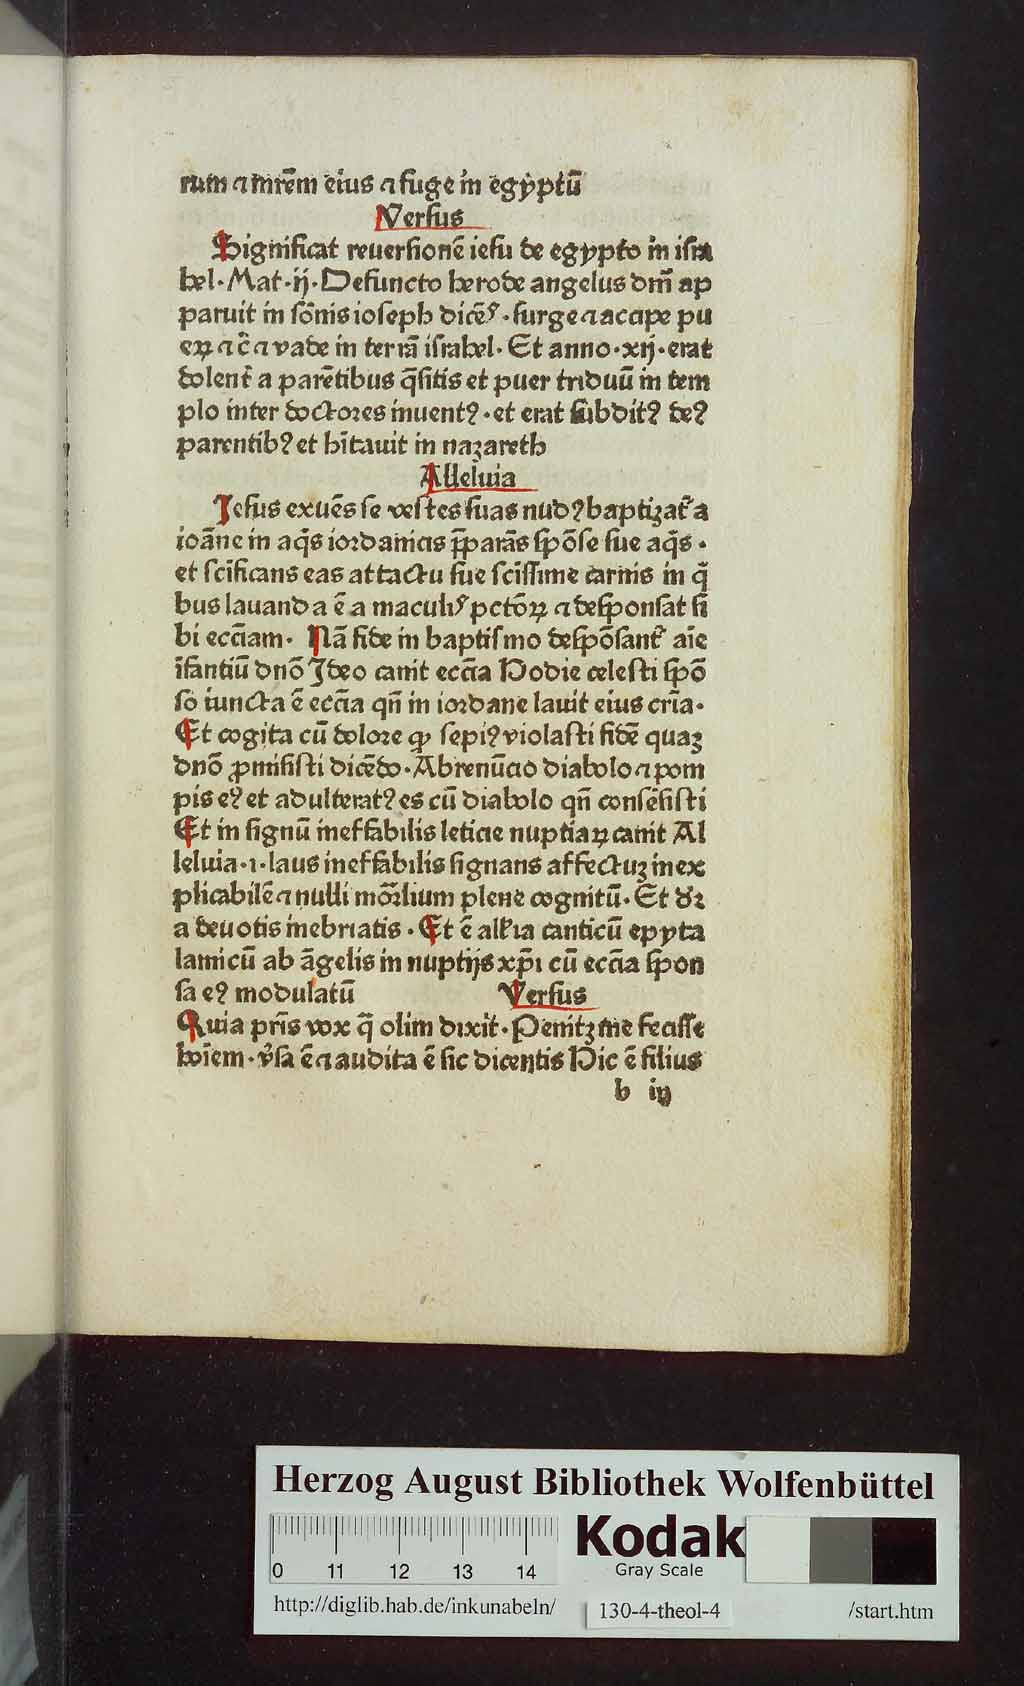 rum ⁊ mrēm eius ⁊ fuge in egẏptū
Versus
Significat reuersionē iesu de egypto in isra
hel· Mat·ij· Defuncto herode angelus dm̄ ap
paruit in sōnis ioseph dicēs · surge ⁊ accipe pu
eꝝ ⁊ c̄ ⁊ vade in terrā israhel· Et anno·xij·erat
dolent̄ a parētibus q̄sitis et puer triduū in tem
plo inter doctores inuentꝰ·et erat subditꝰ deꝰ
parentibꝰ et hītauit in nazareth
Alleluia
Jesus exuēs se vestes suas nudꝰ baptizat̄ a
ioāne in aq̄s iordanicis p̄parās spōse sue aq̄s·
et scīficans eas attactu sue scīssime carnis in q̄
bus lauanda ē a maculis pctōꝝ ⁊ desponsat si
bi ecciam· Nā fide in baptismo despōsant̄ aīe
īfantiū dnō Ideo canit eccīa Hodie celesti spō
so iuncta ē eccīa qn̄ in iordane lauit eius crīa·
Et cogita cū dolore ꝙ sepiꝰ violasti fidē quaꝫ
dnō ꝓmisisti dicēdo·Abrenūcio diabolo ⁊ pom
pis eꝰ et adulteratꝰ es cū diabolo qn̄ consēsisti
Et in signū ineffabilis leticie nuptiaꝝ canit Al
leluia·i·laus ineffabilis signans affectuꝫ inex
plicabilē ⁊ nulli mōrlium plene cognitū· Et dr̄
a deuotis inebriatis· Et ē all'ia canticū epyta
lamicū ab āgelis in nuptijs xp̄i cū eccīa spon
sa eꝰ modulatū Versus
Quia pr̄is vox q̄ olim dixit·Penitꝫ me fecisse
hoīem·v̄sa ē ⁊ audita ē sic dicentis Hic ē filius
b iij
Herzog August Bibliothek Wolfenbüttel
0 11 12 13 14
Kodak
Gray Scale
http://diglib.hab.de/inkunabeln/ 130-4-theol-4 /start.htm